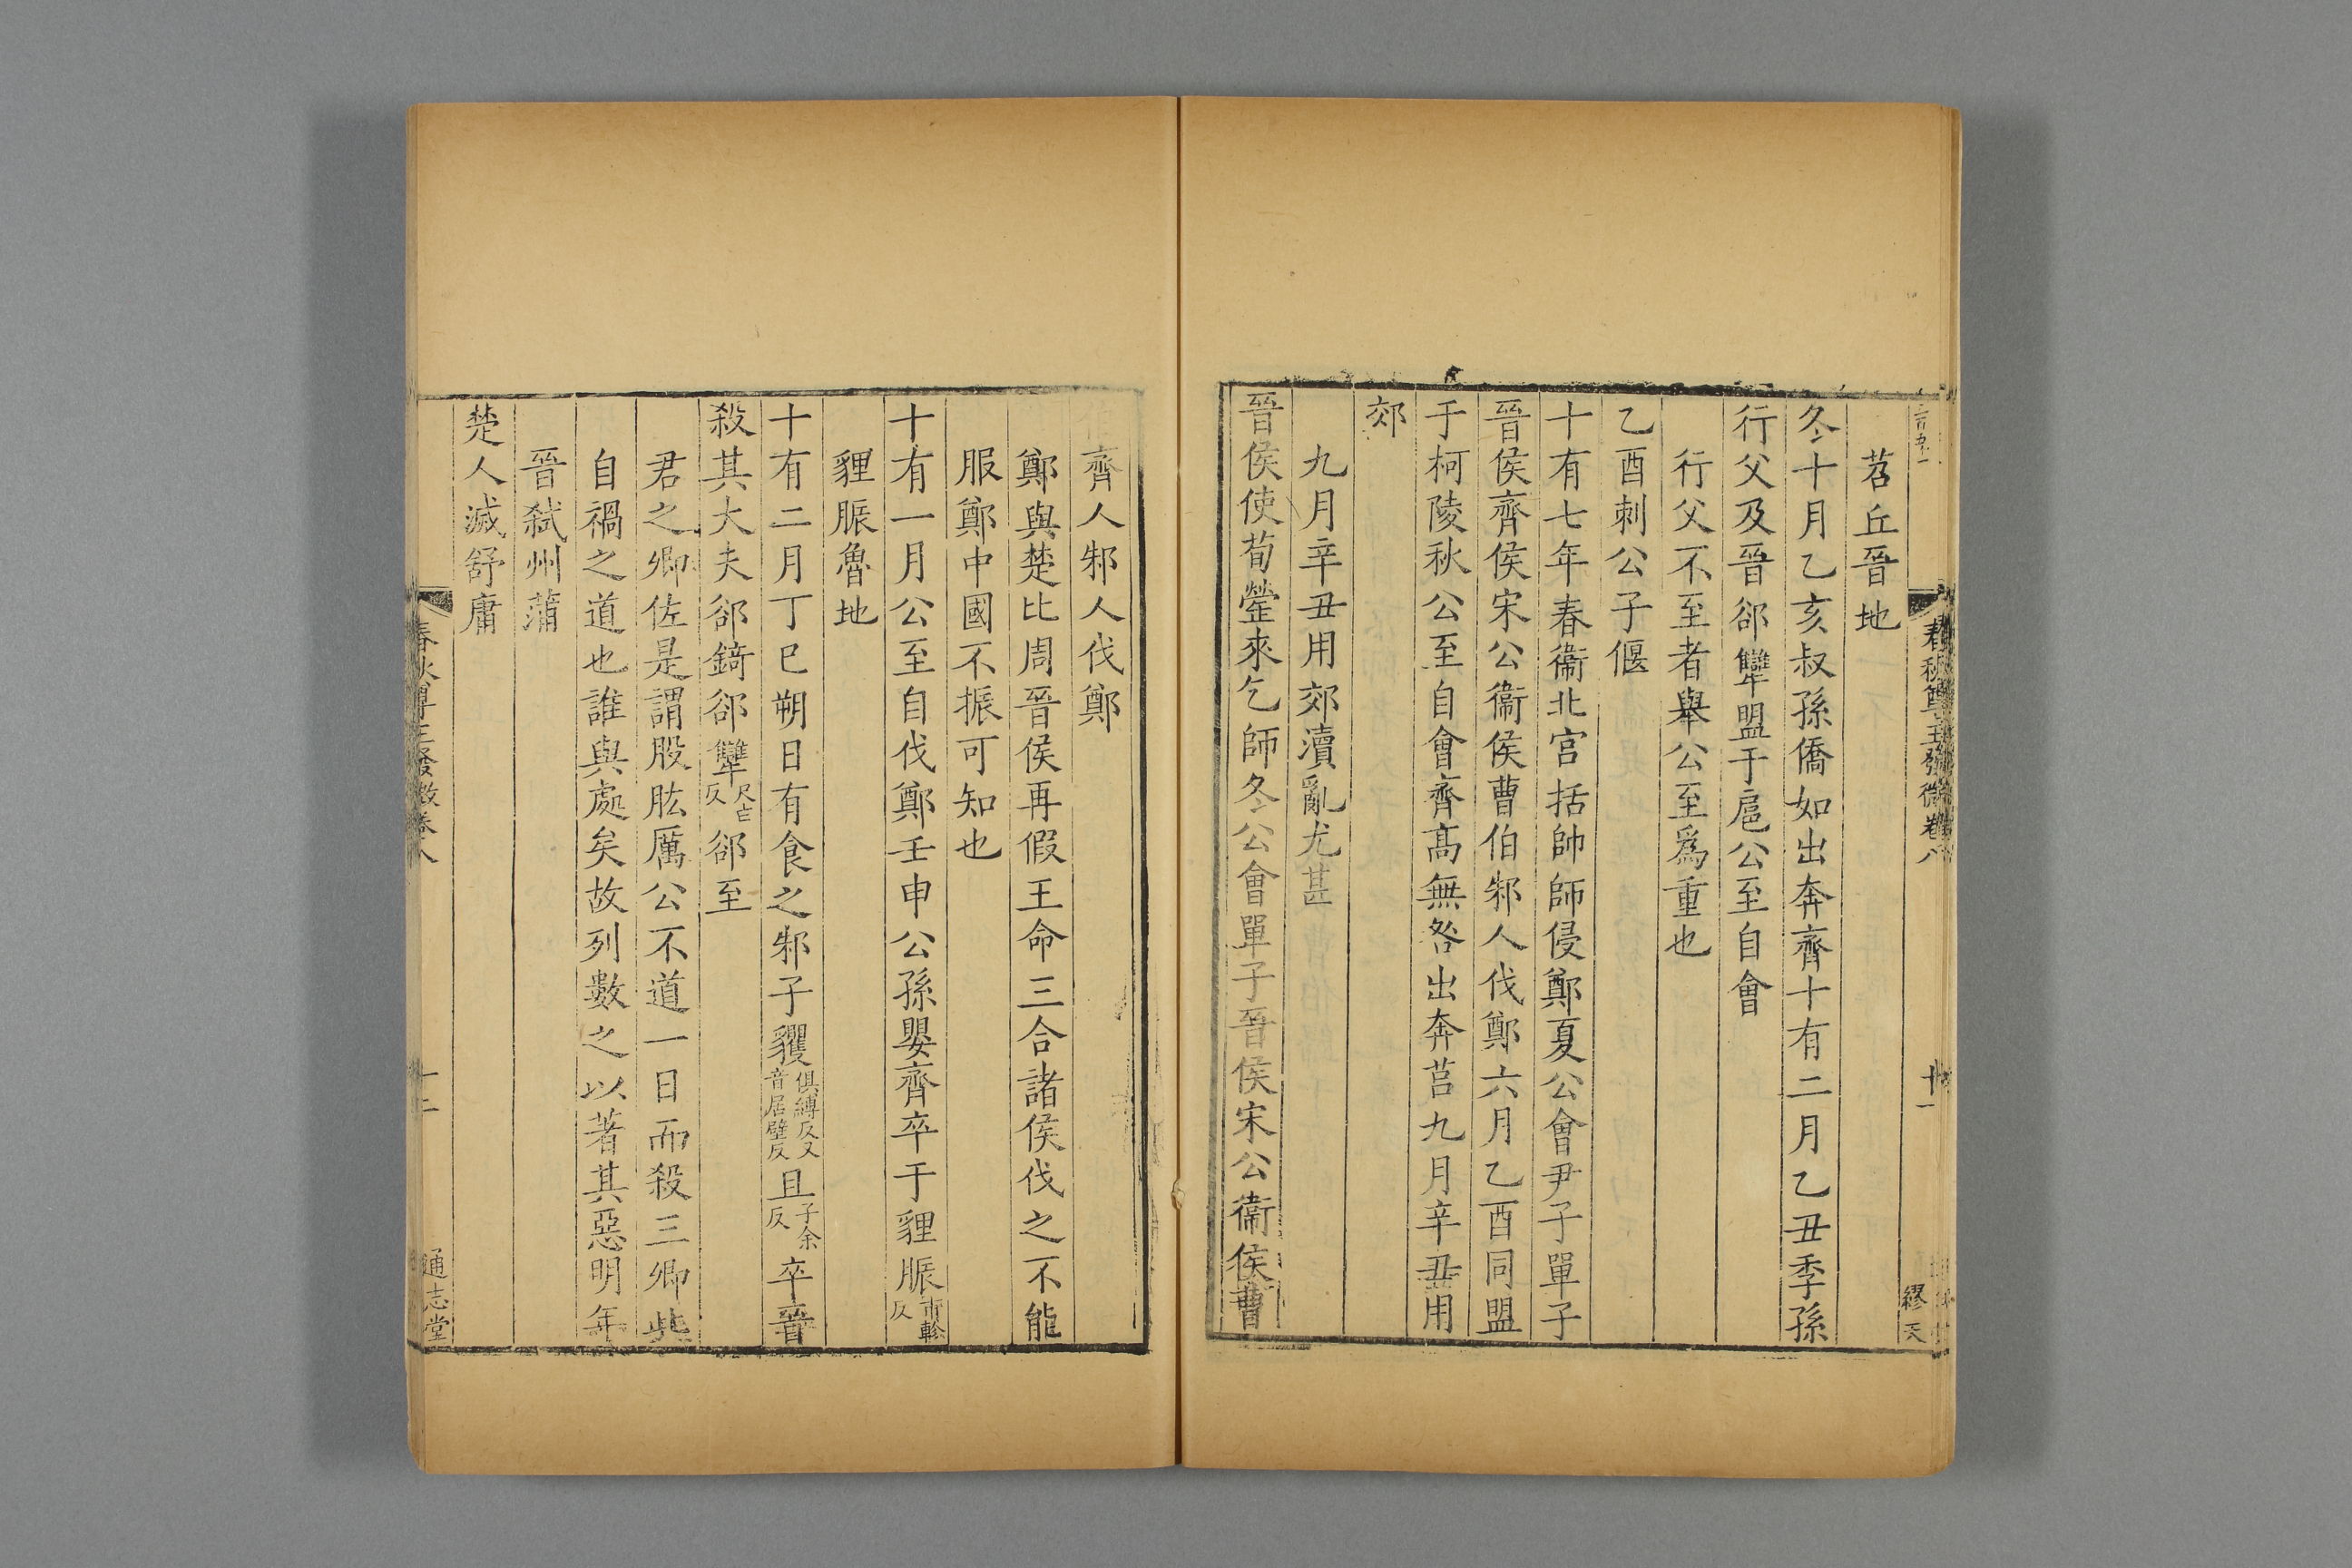 苕丘晉地
冬十月乙亥叔孫僑如出奔齊十有二月乙丑季孫
行父及晉郤犫盟于扈公至自會
行父不至者舉公至爲重也
乙酉刺公子偃
十有七年春衞北宫括帥師侵鄭夏公會尹子單子
晉侯齊侯宋公衞侯曹伯邾人伐鄭六月乙酉同盟
于柯陵秋公至自會齊髙無咎出奔莒九月辛丑用
郊
九月辛丑用郊瀆亂尤甚
晉侯使荀罃來乞師冬公會單子晉侯宋公衞侯曹
齊人邾人伐鄭
鄭與楚比周晉侯再假王命三合諸侯伐之不能
服鄭中國不振可知也
十有一月公至自伐鄭壬申公孫嬰齊卒于貍脤市軫反
貍脤魯地
十有二月丁巳朔日有食之邾子貜俱縛反又音居璧反且子余反卒晉
殺其大夫郤錡郤犫尺亡反郤至
君之卿佐是謂股肱厲公不道一日而殺三卿此
自禍之道也誰與處矣故列數之以著其惡明年
晉弑州蒲
楚人滅舒庸
春秋尊王發微卷八
十二
通志堂
春秋尊王發微卷八
十一
繆天